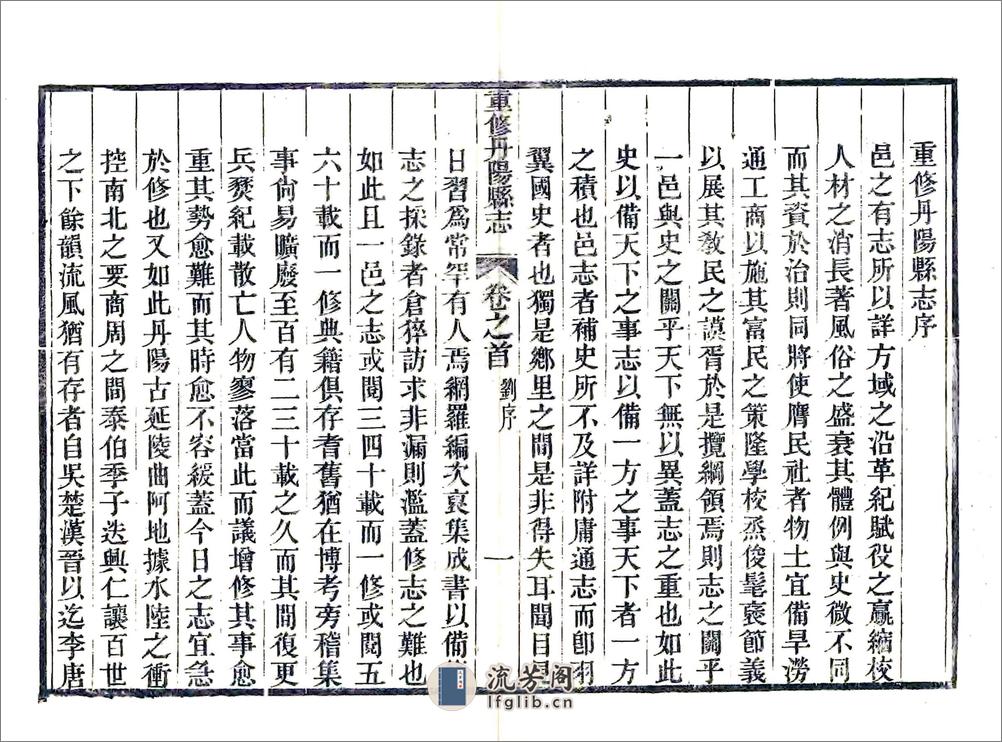 重修丹陽縣志序
邑之有志所以詳方域之沿革紀賦役之贏縮校
人材之消長著風俗之盛衰其體例與史微不同
而其資於治則同將使膺民社者物土宜備旱澇
通工商以施其富民之策隆學校烝俊髦褒節義
以展其敎民之謨胥於是攬綱領焉則志之關乎
一邑與史之關乎天下無以異蓋志之重也如此
史以備天下之事志以備一方之事天下者一方
之積也邑志者補史所不及詳附庸通志而卽羽
翼國史者也獨是鄉里之間是非得失耳聞目
重修丹陽縣志
卷之首
劉序
一
日習爲常罕有人焉網羅編次裒集成書以備
志之採錄者倉猝訪求非漏則濫蓋修志之難也
如此且一邑之志或閱三四十載而一修或閱五
六十載而一修典籍俱存耆舊猶在博考旁稽集
事尙易曠廢至百有二三十載之久而其間復更
兵燹紀載散亡人物寥落當此而議增修其事愈
重其勢愈難而其時愈不容緩蓋今日之志宜急
於修也又如此丹陽古延陵曲阿地據水陸之衝
控南北之要商周之間泰伯季子迭興仁讓百世
之下餘韻流風猶有存者自吳楚漢晉以迄李唐
流芳閣
lfglib.cn